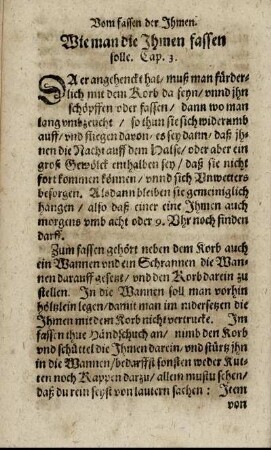 Vom fassen der Ihmen.
Wie man die Ihmen fassen
solle. Cap. 3.
DA er angehenckt hat/ muß man fürder-
lich mit dem Korb da seyn/ vnnd jhn
schöpffen oder fassen/ dann wo man
lang vmbzeucht/ so thun sie sich widerumb
auff/ vnd fliegen davon/ es sey dann/ daß jh-
nen die Nacht auff dem Halse/ oder aber ein
groß Gewölck enthalben sey/ daß sie nicht
fort kommen können/ vnnd sich Vnwetters
besorgen. Alsdann bleiben sie gemeiniglich
hangen/ also daß einer eine Ihmen auch
morgens vmb acht oder 9. Vhr noch finden
darff.
Zum fassen gehört neben dem Korb auch
ein Wannen vnd ein Schrannen die Wan-
nen darauff gesetzt/ vnd den Korb darein zu
stellen. In die Wannen soll man vorhin
höltzlein legen/ damit man im nidersetzen die
Ihmen mit dem Korb nicht vertrucke. Im
fassen thue Händschuch an/ nimb den Korb
vnd schüttel die Ihmen darein/ vnd stürtz jhn
in die Wannen/ bedarffst sonsten weder Kut-
ten noch Kappen darzu/ allein mustu sehen/
daß du rein seyst von lautern sachen: Item
von